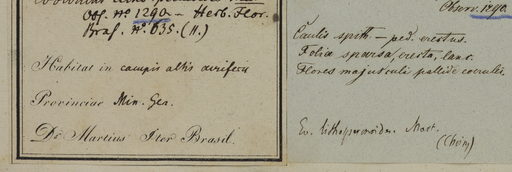 Obs. nº 1290. – Herb. Flor.
Bras. nº 635. (11.)
Habitat in campis altis auriferis
Provinciae Min. Ger.
Dr. Martius Iter Brasil.
Observ. 1290.
Caulis spith – ped. erectus.
Folia sparsa, erecta, lanc.
Flores majusculi pallide coerulei.
Ev. lithospermoides. Mart.
(Choisy)